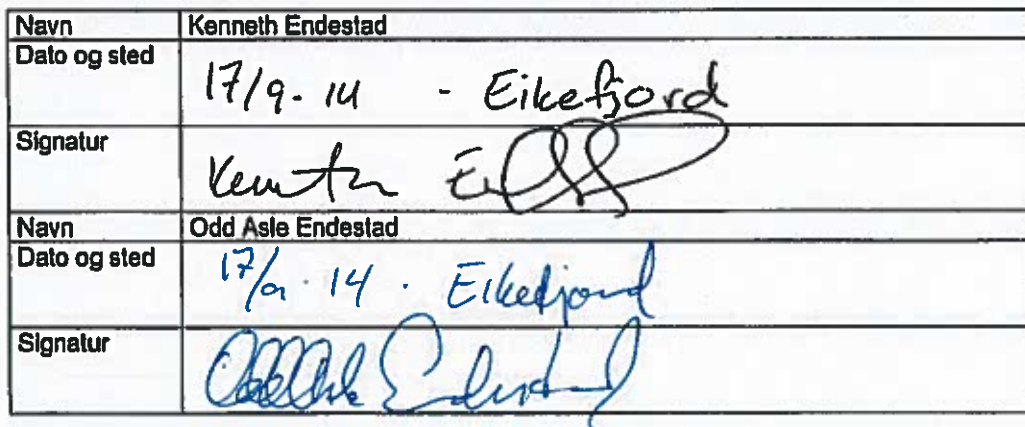 Navn Kenneth Endestad
Dato og sted 17/9-14 - Eikefjord
Signatur Kenneth E
Navn Odd Asle Endestad
Dato og sted 17/9.14. Eikefjord
Signatur Odd Asle Endestad